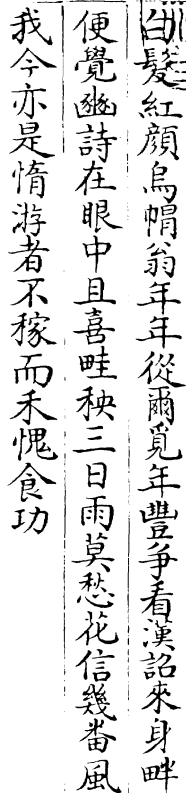 白髮紅顔烏帽翁年年從爾覓年豐爭看漢詔來身畔
便覺豳詩在眼中且喜畦秧三日雨莫愁花信幾番風
我今亦是惰游者不稼而禾愧食功